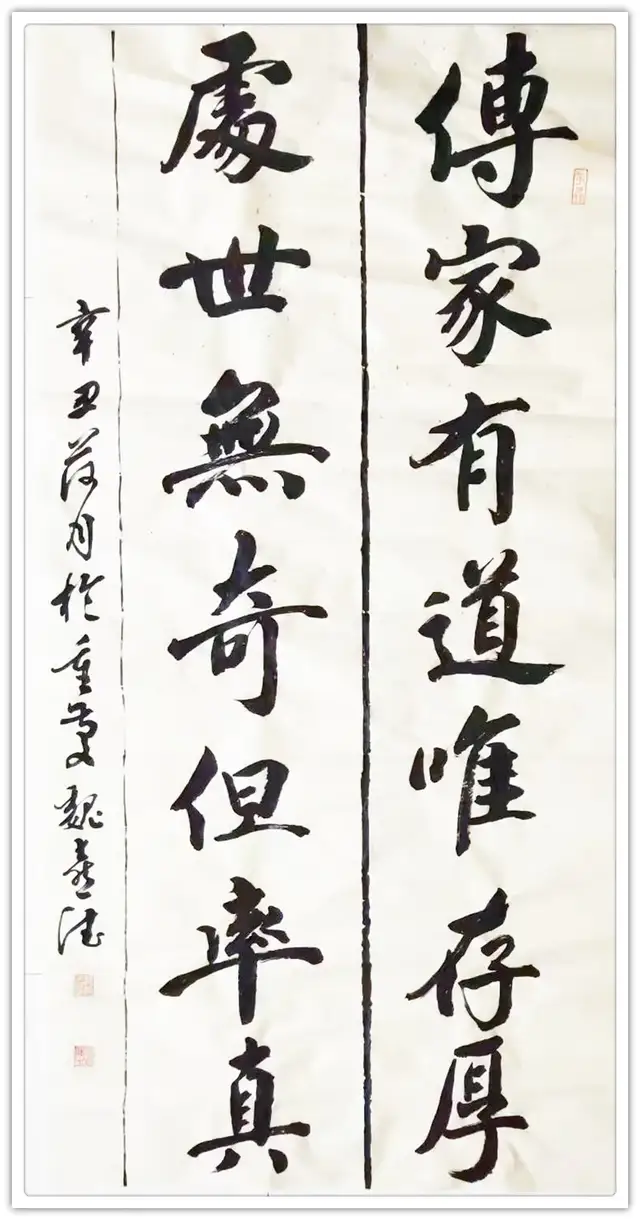 傳家有道唯存厚
處世無奇但率真
辛丑荷月於重慶魏德